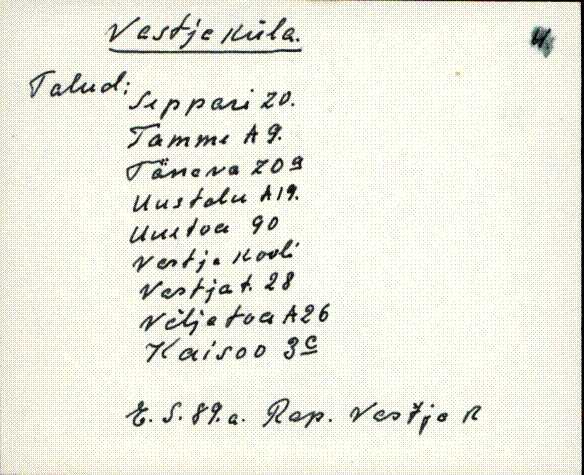 Vastja küla.
4.
Talud:
Seppari 20.
Tamme A 9.
Täneva 20a
Uustalu A19.
Uuetoa 90
Vastja Kooli
Vastja t. 28
Väljatoa A26
Kaisoo 3c
E. S. 89.a. Rap. Vastja k